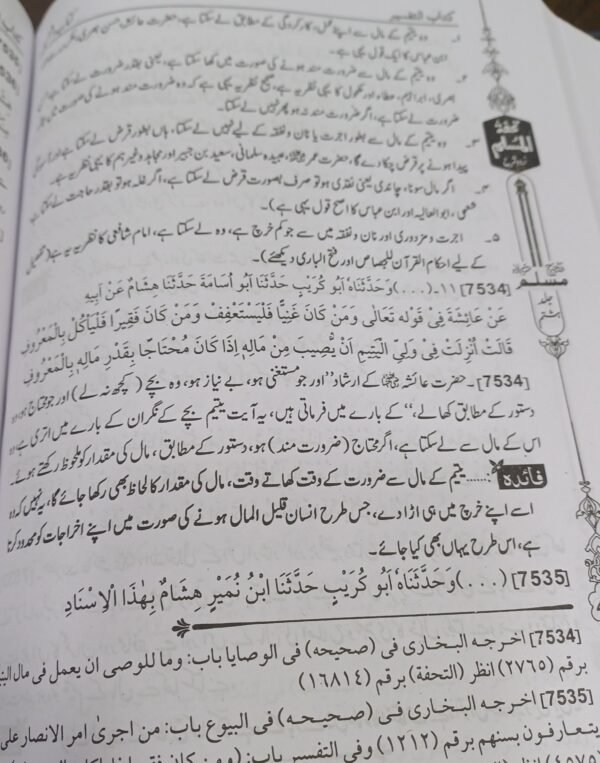 كتاب التفسير
۱۔ وہ یتیم کے مال سے اپنے عمل، کارکردگی کے مطابق لے سکتا ہے، حضرت عائش حسن بصری،
ابن عباس کا ایک قول یہی ہے۔
۲۔ وہ یتیم کے مال سے ضرورت مند ہونے کی صورت میں کھا سکتا ہے، یعنی بقدر ضرورت لے سکتا ہے،
بصری، ابراہیم، عطاء اور مکحول کا یہی نظریہ ہے، صحیح نظریہ یہی ہے کہ وہ ضرورت مند ہونے کی صورت میں بقدر
ضرورت لے سکتا ہے، اگر ضرورت مند نہ ہو پھر نہیں لے سکتا۔
۳۔ وہ یتیم کے مال سے بطور اجرت یا نان و نفقہ کے لیے نہیں لے سکتا، ہاں بطور قرض لے سکتا ہے اور آسانی
پیدا ہونے پر قرض چکا دے گا، حضرت عمر، عبیدہ سلمانی، سعید بن جبیر اور مجاہد وغیرہم کا یہی نظریہ ہے۔
۴۔ اگر مال سونا، چاندی یعنی نقدی ہو تو صرف بصورت قرض لے سکتا ہے، اگر غلہ ہو تو بقدر حاجت لے سکتا ہے
شعبی، ابوالعالیہ اور ابن عباس کا اصح قول یہی ہے)۔
۵۔ اجرت و مزدوری اور نان و نفقہ میں سے جو کم خرچ ہے، وہ لے سکتا ہے، امام شافعی کا نظریہ یہ ہے (تفصیل
کے لیے احکام القرآن للجصاص اور فتح الباری دیکھئے)۔
[7534] ۱۱-(...) وَحَدَّثَنَاهُ أَبُو كُرَيْبٍ حَدَّثَنَا أَبُو أُسَامَةَ حَدَّثَنَا هِشَامٌ عَنْ أَبِيهِ
عَنْ عَائِشَةَ فِي قَوْلِهِ تَعَالَى وَمَنْ كَانَ غَنِيًّا فَلْيَسْتَعْفِفْ وَمَنْ كَانَ فَقِيرًا فَلْيَأْكُلْ بِالْمَعْرُوفِ
قَالَتْ أُنْزِلَتْ فِي وَلِيِّ الْيَتِيمِ أَنْ يُصِيبَ مِنْ مَالِهِ إِذَا كَانَ مُحْتَاجًا بِقَدْرِ مَالِهِ بِالْمَعْرُوفِ
[7534]۔ حضرت عائشہ کے ارشاد ”اور جو مستغنی ہو، بے نیاز ہو، وہ بچے (کچھ نہ لے) اور جو محتاج ہو، وہ
دستور کے مطابق کھالے،“ کے بارے میں فرماتی ہیں، یہ آیت یتیم بچے کے نگران کے بارے میں اتری ہے، وہ
اس کے مال سے لے سکتا ہے، اگر محتاج (ضرورت مند) ہو، دستور کے مطابق، مال کی مقدار کو ملحوظ رکھتے ہوئے۔
فائدہ ...... یتیم کے مال سے ضرورت کے وقت کھاتے وقت، مال کی مقدار کا لحاظ بھی رکھا جائے گا، یہ نہیں کہ وہ
اسے اپنے خرچ میں ہی اڑا دے، جس طرح انسان قلیل المال ہونے کی صورت میں اپنے اخراجات کو محدود کرتا
ہے، اس طرح یہاں بھی کیا جائے۔
[7535] (...) وَحَدَّثَنَاهُ أَبُو كُرَيْبٍ حَدَّثَنَا ابْنُ نُمَيْرٍ هِشَامٌ بِهٰذَا الْإِسْنَادِ
[7534] اخرجه البخاری فی (صحيحه) فی الوصايا باب: وما للوصی ان يعمل فی مال
برقم (٢٧٦٥) انظر (التحفة) برقم (١٦٨١٤)
[7535] اخرجه البخاری فی (صحيحه) فی البيوع باب: من اجریٰ امر الانصار علی
يتعارفون بينهم برقم (١٢١٢) وفی التفسير باب:
تحفة
المسلم
صحيح
مسلم
جلد
ہشتم